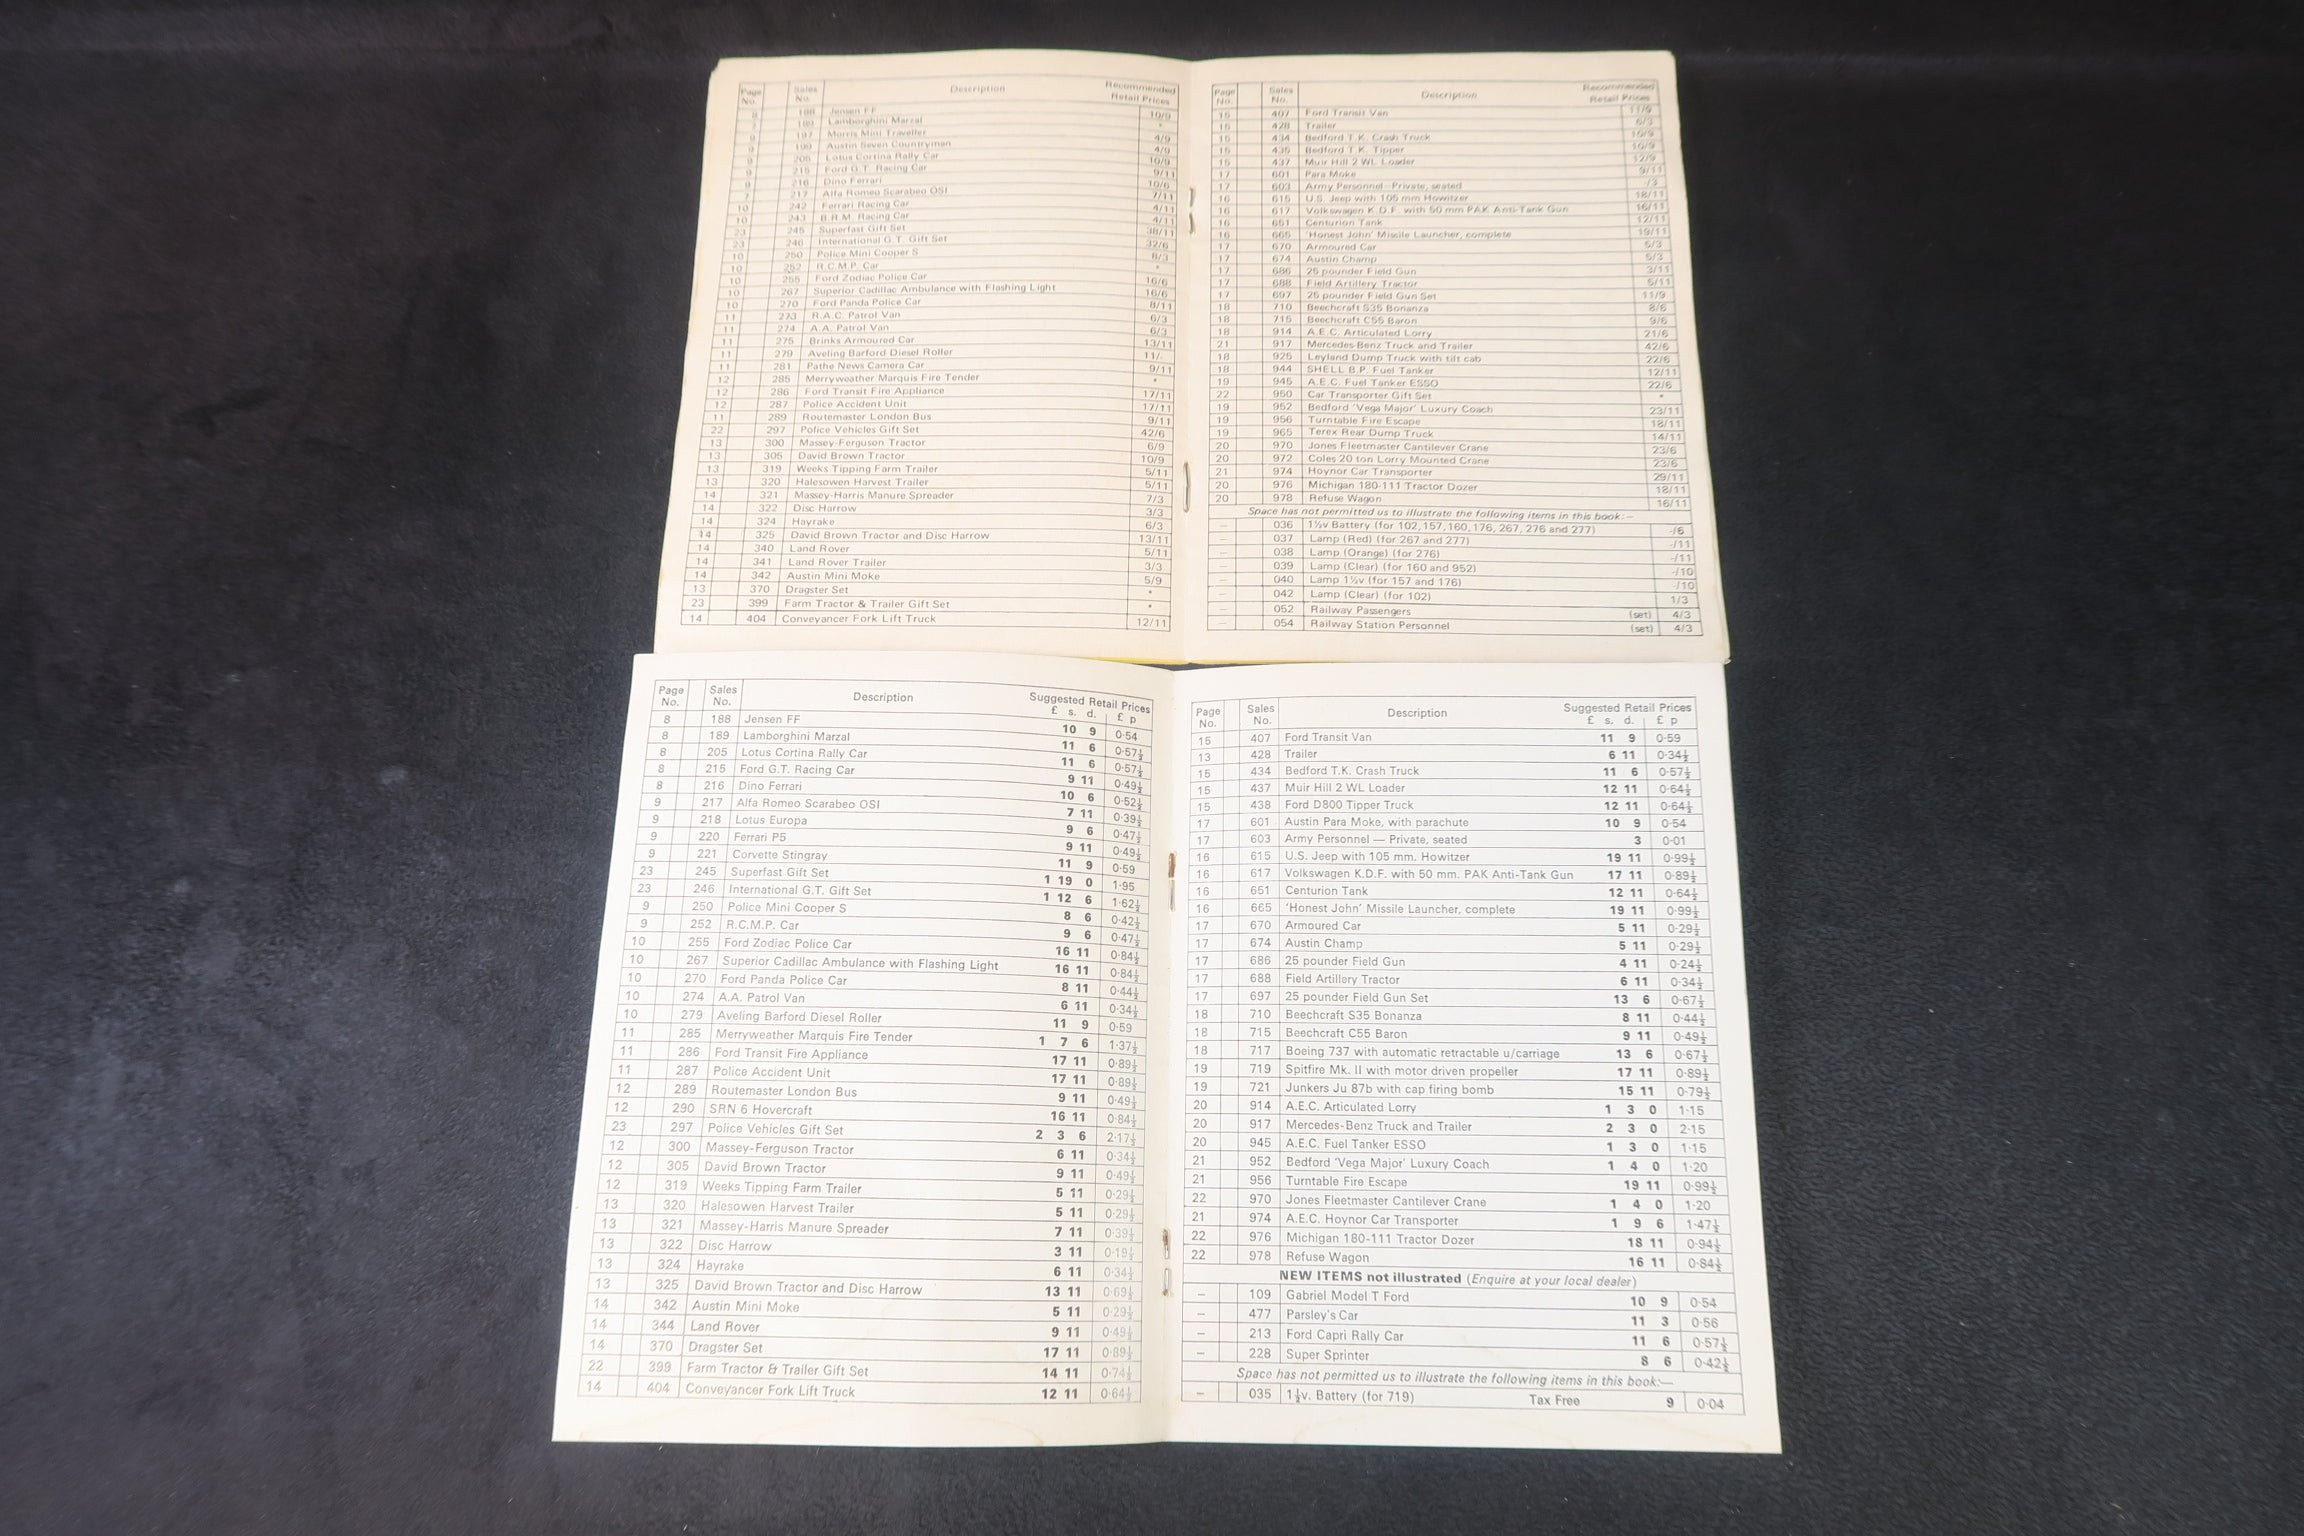 Page No. Sales No. Description Recommended Retail Prices
8 188 Jensen FF 10/9
7 189 Lamborghini Marzal *
9 197 Morris Mini Traveller 4/9
9 199 Austin Seven Countryman 4/9
9 205 Lotus Cortina Rally Car 10/9
9 215 Ford G.T. Racing Car 9/11
9 216 Dino Ferrari 10/6
7 217 Alfa Romeo Scarabeo OSI 7/11
10 242 Ferrari Racing Car 4/11
10 243 B.R.M. Racing Car 4/11
23 245 Superfast Gift Set 38/11
23 246 International G.T. Gift Set 32/6
10 250 Police Mini Cooper S 8/3
10 252 R.C.M.P. Car *
10 255 Ford Zodiac Police Car 16/6
10 267 Superior Cadillac Ambulance with Flashing Light 16/6
10 270 Ford Panda Police Car 8/11
11 273 R.A.C. Patrol Van 6/3
11 274 A.A. Patrol Van 6/3
11 275 Brinks Armoured Car 13/11
11 279 Aveling Barford Diesel Roller 11/-
11 281 Pathe News Camera Car 9/11
12 285 Merryweather Marquis Fire Tender *
12 286 Ford Transit Fire Appliance 17/11
12 287 Police Accident Unit 17/11
11 289 Routemaster London Bus 9/11
22 297 Police Vehicles Gift Set 42/6
13 300 Massey-Ferguson Tractor 6/9
13 305 David Brown Tractor 10/9
13 319 Weeks Tipping Farm Trailer 5/11
13 320 Halesowen Harvest Trailer 5/11
14 321 Massey-Harris Manure Spreader 7/3
14 322 Disc Harrow 3/3
14 324 Hayrake 6/3
14 325 David Brown Tractor and Disc Harrow 13/11
14 340 Land Rover 5/11
14 341 Land Rover Trailer 3/3
14 342 Austin Mini Moke 5/9
13 370 Dragster Set *
23 399 Farm Tractor & Trailer Gift Set *
14 404 Conveyancer Fork Lift Truck 12/11
Page No. Sales No. Description Recommended Retail Prices
15 407 Ford Transit Van 11/9
15 428 Trailer 6/3
15 434 Bedford T.K. Crash Truck 10/9
15 435 Bedford T.K. Tipper 10/9
15 437 Muir Hill 2 WL Loader 12/9
17 601 Para Moke 9/11
17 603 Army Personnel—Private, seated -/3
16 615 U.S. Jeep with 105 mm Howitzer 18/11
16 617 Volkswagen K.D.F. with 50 mm PAK Anti-Tank Gun 16/11
16 651 Centurion Tank 12/11
16 665 'Honest John' Missile Launcher, complete 19/11
17 670 Armoured Car 5/3
17 674 Austin Champ 5/3
17 686 25 pounder Field Gun 3/11
17 688 Field Artillery Tractor 5/11
17 697 25 pounder Field Gun Set 11/9
18 710 Beechcraft S35 Bonanza 8/6
18 715 Beechcraft C55 Baron 9/6
18 914 A.E.C. Articulated Lorry 21/6
21 917 Mercedes-Benz Truck and Trailer 42/6
18 925 Leyland Dump Truck with tilt cab 22/6
18 944 SHELL B.P. Fuel Tanker 12/11
19 945 A.E.C. Fuel Tanker ESSO 22/6
22 950 Car Transporter Gift Set *
19 952 Bedford 'Vega Major' Luxury Coach 23/11
19 956 Turntable Fire Escape 18/11
19 965 Terex Rear Dump Truck 14/11
20 970 Jones Fleetmaster Cantilever Crane 23/6
20 972 Coles 20 ton Lorry Mounted Crane 23/6
21 974 Hoynor Car Transporter 29/11
20 976 Michigan 180-111 Tractor Dozer 18/11
20 978 Refuse Wagon 16/11
Space has not permitted us to illustrate the following items in this book:—
— 036 1½v Battery (for 102, 157, 160, 176, 267, 276 and 277) -/6
— 037 Lamp (Red) (for 267 and 277) -/11
— 038 Lamp (Orange) (for 276) -/11
— 039 Lamp (Clear) (for 160 and 952) -/10
— 040 Lamp 1½v (for 157 and 176) -/10
— 042 Lamp (Clear) (for 102) 1/3
— 052 Railway Passengers (set) 4/3
— 054 Railway Station Personnel (set) 4/3
Page No. Sales No. Description Suggested Retail Prices £ s. d. £ p
8 188 Jensen FF 10 9 0·54
8 189 Lamborghini Marzal 11 6 0·57½
8 205 Lotus Cortina Rally Car 11 6 0·57½
8 215 Ford G.T. Racing Car 9 11 0·49½
8 216 Dino Ferrari 10 6 0·52½
9 217 Alfa Romeo Scarabeo OSI 7 11 0·39½
9 218 Lotus Europa 9 6 0·47½
9 220 Ferrari P5 9 11 0·49½
9 221 Corvette Stingray 11 9 0·59
23 245 Superfast Gift Set 1 19 0 1·95
23 246 International G.T. Gift Set 1 12 6 1·62½
9 250 Police Mini Cooper S 8 6 0·42½
9 252 R.C.M.P. Car 9 6 0·47½
10 255 Ford Zodiac Police Car 16 11 0·84½
10 267 Superior Cadillac Ambulance with Flashing Light 16 11 0·84½
10 270 Ford Panda Police Car 8 11 0·44½
10 274 A.A. Patrol Van 6 11 0·34½
10 279 Aveling Barford Diesel Roller 11 9 0·59
11 285 Merryweather Marquis Fire Tender 1 7 6 1·37½
11 286 Ford Transit Fire Appliance 17 11 0·89½
11 287 Police Accident Unit 17 11 0·89½
12 289 Routemaster London Bus 9 11 0·49½
12 290 SRN 6 Hovercraft 16 11 0·84½
23 297 Police Vehicles Gift Set 2 3 6 2·17½
12 300 Massey-Ferguson Tractor 6 11 0·34½
12 305 David Brown Tractor 9 11 0·49½
12 319 Weeks Tipping Farm Trailer 5 11 0·29½
13 320 Halesowen Harvest Trailer 5 11 0·29½
13 321 Massey-Harris Manure Spreader 7 11 0·39½
13 322 Disc Harrow 3 11 0·19½
13 324 Hayrake 6 11 0·34½
13 325 David Brown Tractor and Disc Harrow 13 11 0·69½
14 342 Austin Mini Moke 5 11 0·29½
14 344 Land Rover 9 11 0·49½
14 370 Dragster Set 17 11 0·89½
22 399 Farm Tractor & Trailer Gift Set 14 11 0·74½
14 404 Conveyancer Fork Lift Truck 12 11 0·64½
Page No. Sales No. Description Suggested Retail Prices £ s. d. £ p
15 407 Ford Transit Van 11 9 0·59
13 428 Trailer 6 11 0·34½
15 434 Bedford T.K. Crash Truck 11 6 0·57½
15 437 Muir Hill 2 WL Loader 12 11 0·64½
15 438 Ford D800 Tipper Truck 12 11 0·64½
17 601 Austin Para Moke, with parachute 10 9 0·54
17 603 Army Personnel — Private, seated 3 0·01
16 615 U.S. Jeep with 105 mm. Howitzer 19 11 0·99½
16 617 Volkswagen K.D.F. with 50 mm. PAK Anti-Tank Gun 17 11 0·89½
16 651 Centurion Tank 12 11 0·64½
16 665 'Honest John' Missile Launcher, complete 19 11 0·99½
17 670 Armoured Car 5 11 0·29½
17 674 Austin Champ 5 11 0·29½
17 686 25 pounder Field Gun 4 11 0·24½
17 688 Field Artillery Tractor 6 11 0·34½
17 697 25 pounder Field Gun Set 13 6 0·67½
18 710 Beechcraft S35 Bonanza 8 11 0·44½
18 715 Beechcraft C55 Baron 9 11 0·49½
18 717 Boeing 737 with automatic retractable u/carriage 13 6 0·67½
19 719 Spitfire Mk. II with motor driven propeller 17 11 0·89½
19 721 Junkers Ju 87b with cap firing bomb 15 11 0·79½
20 914 A.E.C. Articulated Lorry 1 3 0 1·15
20 917 Mercedes-Benz Truck and Trailer 2 3 0 2·15
20 945 A.E.C. Fuel Tanker ESSO 1 3 0 1·15
21 952 Bedford 'Vega Major' Luxury Coach 1 4 0 1·20
21 956 Turntable Fire Escape 19 11 0·99½
22 970 Jones Fleetmaster Cantilever Crane 1 4 0 1·20
21 974 A.E.C. Hoynor Car Transporter 1 9 6 1·47½
22 976 Michigan 180-111 Tractor Dozer 18 11 0·94½
22 978 Refuse Wagon 16 11 0·84½
NEW ITEMS not illustrated (Enquire at your local dealer)
— 109 Gabriel Model T Ford 10 9 0·54
— 477 Parsley's Car 11 3 0·56
— 213 Ford Capri Rally Car 11 6 0·57½
— 228 Super Sprinter 8 6 0·42½
Space has not permitted us to illustrate the following items in this book:—
— 035 1½v. Battery (for 719) Tax Free 9 0·04